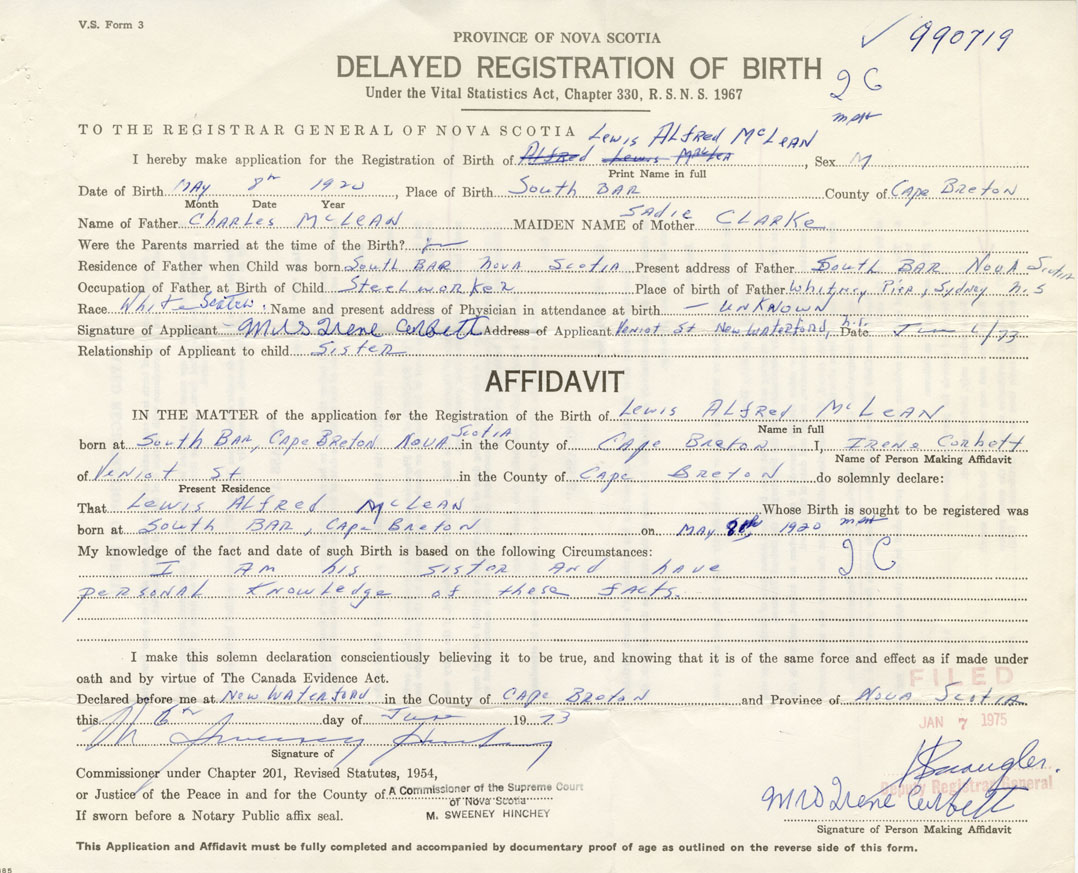 V.S. Form 3
990719
PROVINCE OF NOVA SCOTIA
DELAYED REGISTRATION OF BIRTH
Under the Vital Statistics Act, Chapter 330, R. S. N. S. 1967
TO THE REGISTRAR GENERAL OF NOVA SCOTIA Lewis Alfred McLean
I hereby make application for the Registration of Birth of Alfred Lewis , Sex M
Print Name in full
Date of Birth May 8th 1920, Place of Birth South Bar County of Cape Breton
Month Date Year
Name of Father Charles McLean MAIDEN NAME of Mother Sadie Clarke
Were the Parents married at the time of the Birth?
Residence of Father when Child was born South Bar Nova Scotia Present address of Father South Bar Nova Scotia
Occupation of Father at Birth of Child Steelworker Place of birth of Father Whitney Pier, Sydney N.S
Race White Name and present address of Physician in attendance at birth - Unknown
Signature of Applicant Mrs Irene Corbett Address of Applicant Veniot St New Waterford, N.S. Date June 6/73
Relationship of Applicant to child Sister
AFFIDAVIT
IN THE MATTER of the application for the Registration of the Birth of Lewis Alfred McLean
Name in full
born at South Bar, Cape Breton Nova Scotia in the County of Cape Breton I, Irene Corbett
Name of Person Making Affidavit
of Veniot St in the County of Cape Breton do solemnly declare:
Present Residence
That Lewis Alfred McLean Whose Birth is sought to be registered was
born at South Bar, Cape Breton on May 8th 1920
My knowledge of the fact and date of such Birth is based on the following Circumstances:
I am his sister and have
personal knowledge of these facts.
I make this solemn declaration conscientiously believing it to be true, and knowing that it is of the same force and effect as if made under
oath and by virtue of The Canada Evidence Act.
FILED
Declared before me at New Waterford in the County of Cape Breton and Province of Nova Scotia
this 6th day of June 1973
JAN 7 1975
M Sweeney Hinchey
Signature of
Commissioner under Chapter 201, Revised Statutes, 1954,
or Justice of the Peace in and for the County of A Commissioner of the Supreme Court
of Nova Scotia
Deputy Registrar General
If sworn before a Notary Public affix seal. M. SWEENEY HINCHEY
Mrs Irene Corbett
Signature of Person Making Affidavit
This Application and Affidavit must be fully completed and accompanied by documentary proof of age as outlined on the reverse side of this form.